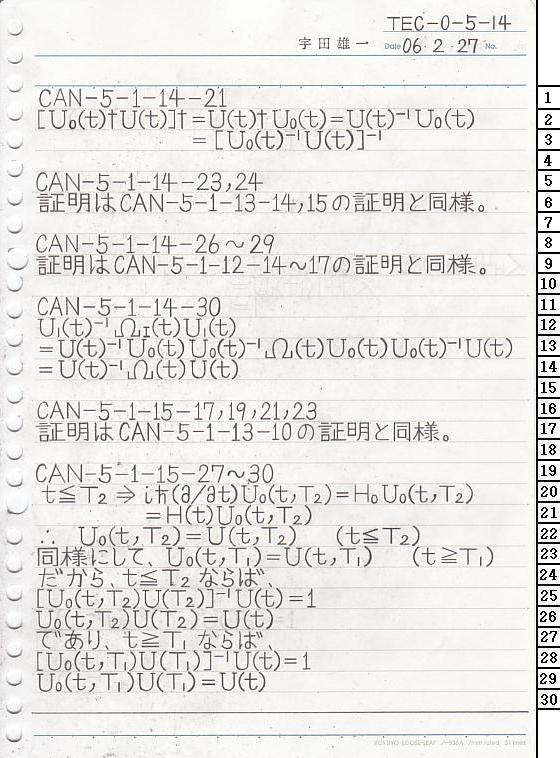 TEC-0-5-14
宇田雄一 Date 06・2・27 No.
CAN-5-1-14-21
[U₀(t)†U(t)]†=U(t)†U₀(t)=U(t)⁻¹U₀(t)
=[U₀(t)⁻¹U(t)]⁻¹
CAN-5-1-14-23,24
証明はCAN-5-1-13-14,15の証明と同様。
CAN-5-1-14-26~29
証明はCAN-5-1-12-14~17の証明と同様。
CAN-5-1-14-30
U₁(t)⁻¹Ω_I(t)U₁(t)
=U(t)⁻¹U₀(t)U₀(t)⁻¹Ω(t)U₀(t)U₀(t)⁻¹U(t)
=U(t)⁻¹Ω(t)U(t)
CAN-5-1-15-17,19,21,23
証明はCAN-5-1-13-10の証明と同様。
CAN-5-1-15-27~30
t≦T₂⇒iℏ(∂/∂t)U₀(t,T₂)=H₀U₀(t,T₂)
=H(t)U₀(t,T₂)
∴ U₀(t,T₂)=U(t,T₂) (t≦T₂)
同様にして、U₀(t,T₁)=U(t,T₁) (t≧T₁)
だから、t≦T₂ならば、
[U₀(t,T₂)U(T₂)]⁻¹U(t)=1
U₀(t,T₂)U(T₂)=U(t)
であり、t≧T₁ならば、
[U₀(t,T₁)U(T₁)]⁻¹U(t)=1
U₀(t,T₁)U(T₁)=U(t)
KOKUYO LOOSE-LEAF ノ-836A 7mm ruled 31 lines
1
2
3
4
5
6
7
8
9
10
11
12
13
14
15
16
17
18
19
20
21
22
23
24
25
26
27
28
29
30